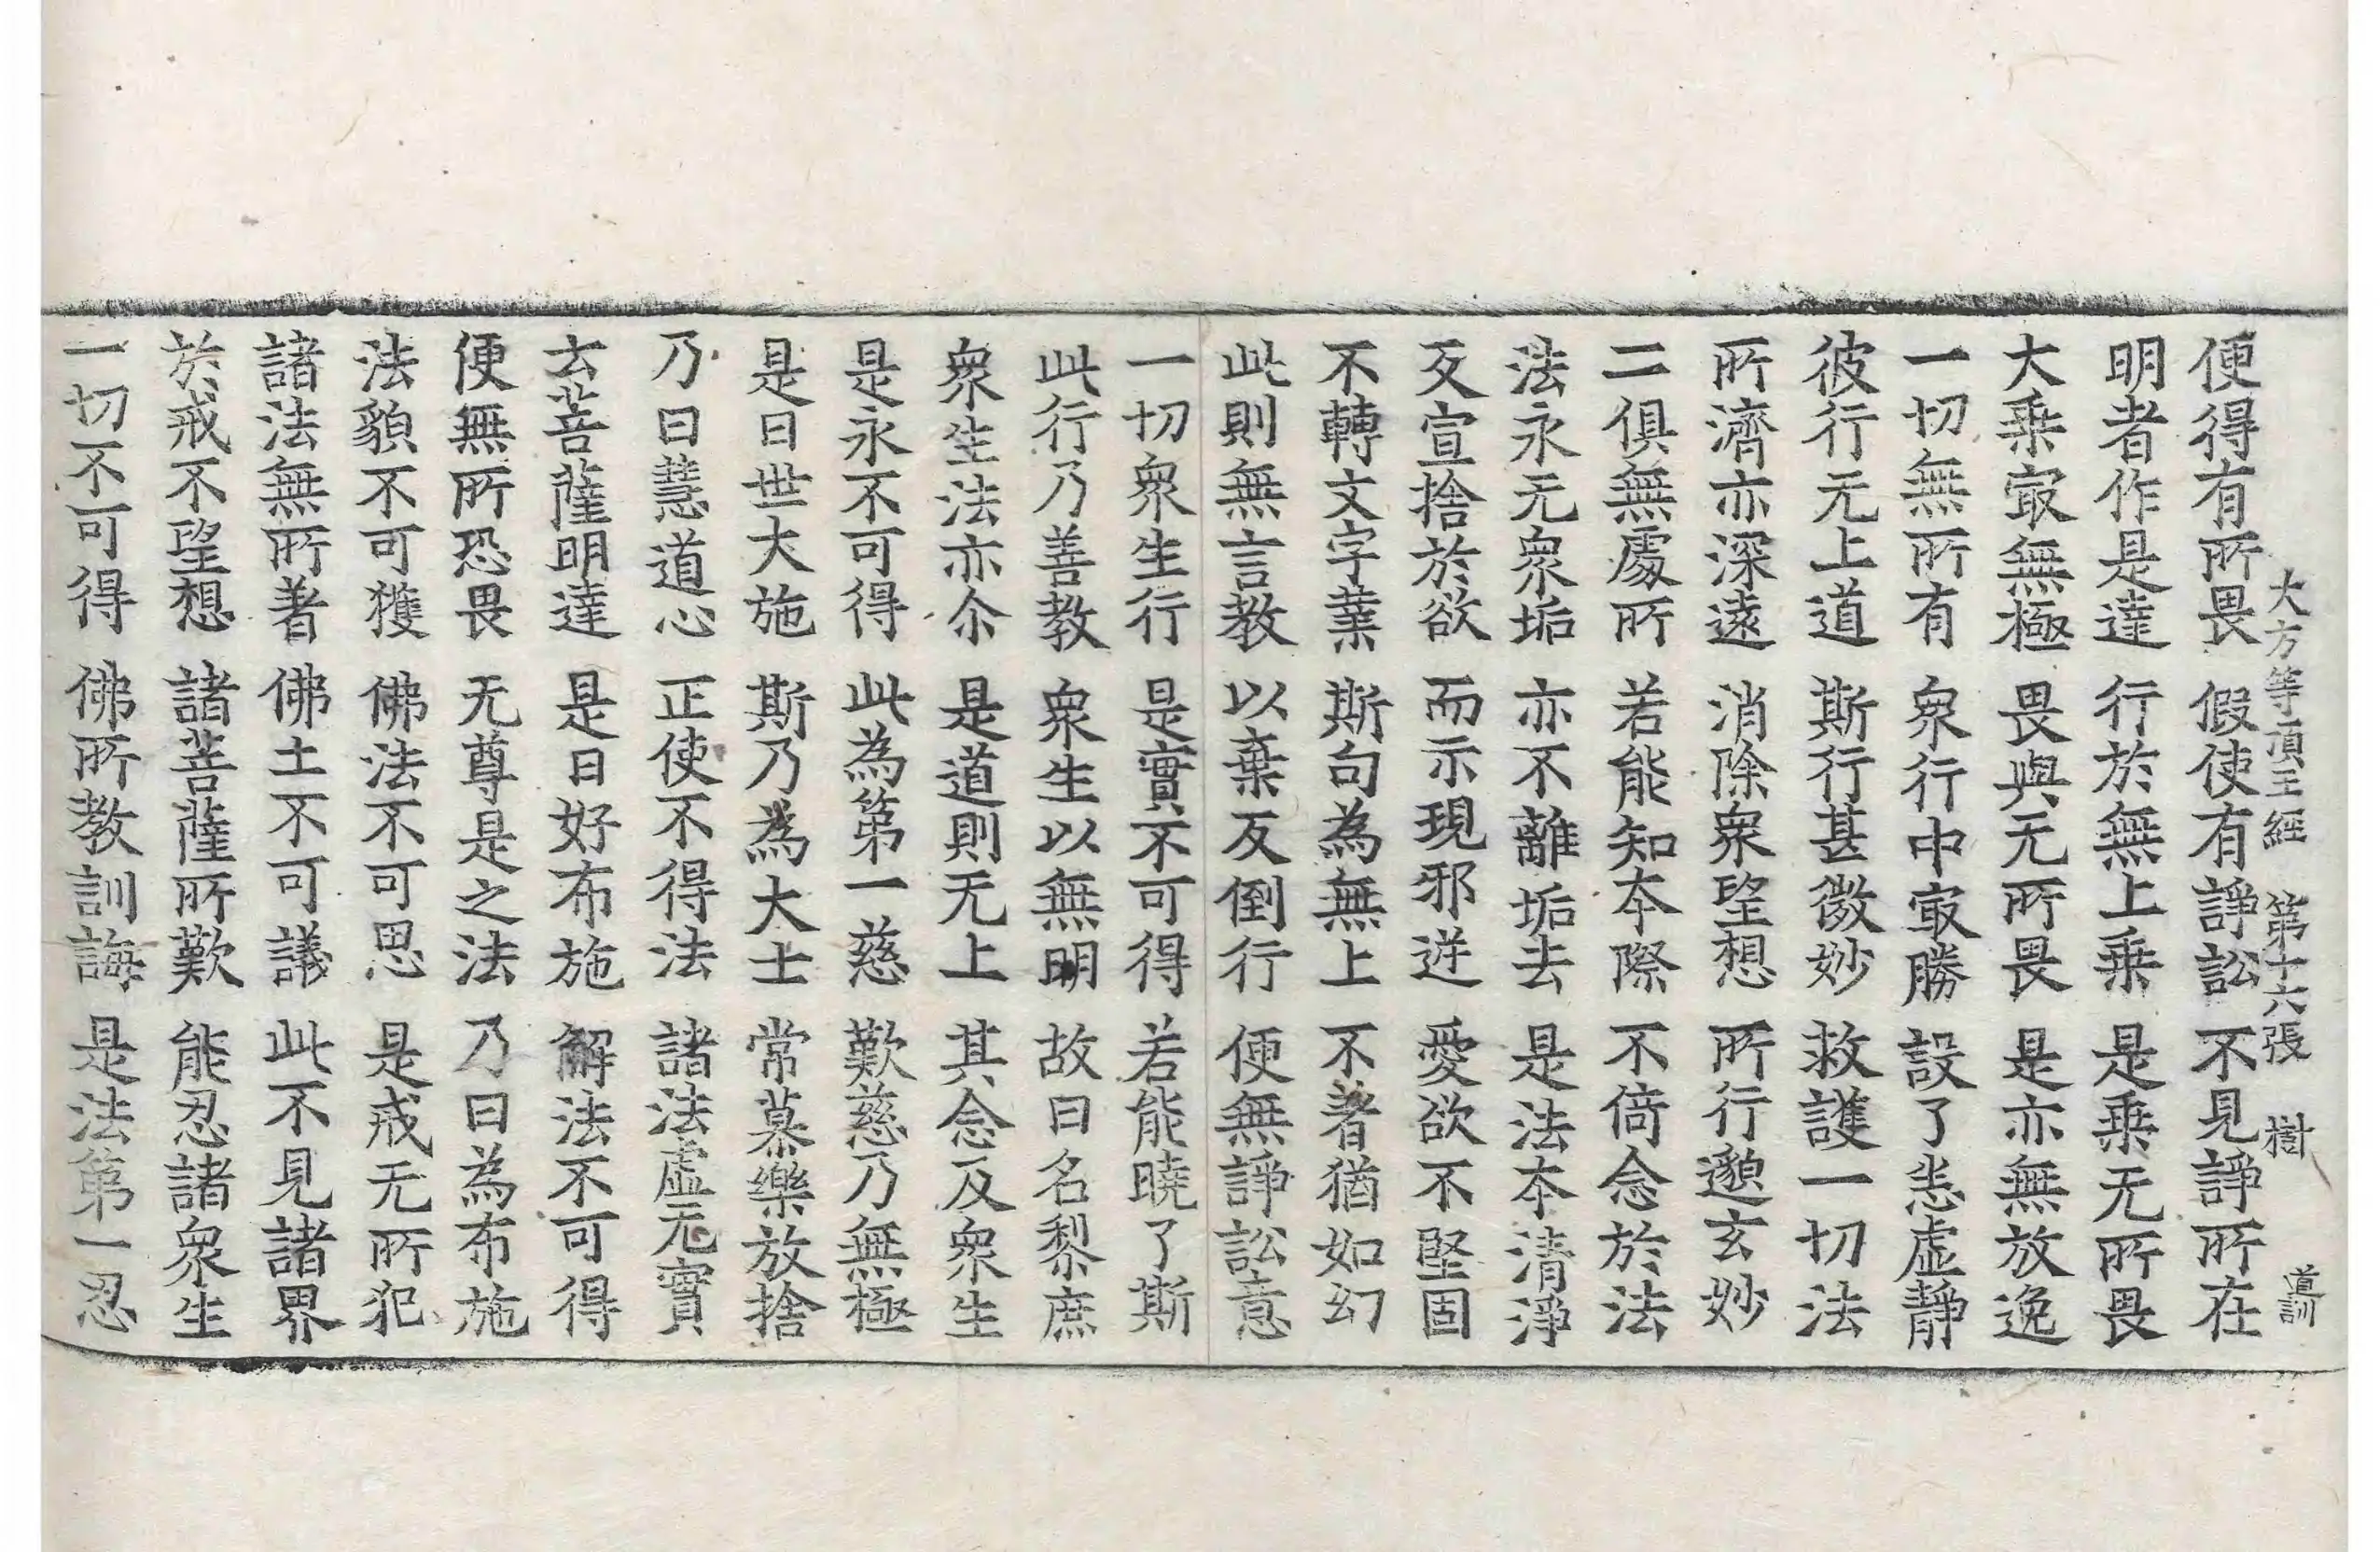 大方等頂王經　第十六張　樹　道訓
便得有所畏　假使有諍訟　不見諍所在
明者作是達　行於無上乘　是乘无所畏
大乘㝡無極　畏與无所畏　是亦無放逸
一切無所有　衆行中㝡勝　設了恙虛靜
彼行无上道　斯行甚微妙　救護一切法
所濟亦深遠　消除衆望想　所行邈玄妙
二俱無處所　若能知本際　不倚念於法
法永无衆垢　亦不離垢去　是法本清淨
叐宣捨於欲　而示現邪逆　愛欲不堅固
不轉文字業　斯句為無上　不著猶如幻
此則無言教　以棄反倒行　便無諍訟意
一切衆生行　是實不可得　若能曉了斯
此行乃善教　衆生以無明　故曰名黎庶
衆生法亦尒　是道則无上　其念及衆生
是永不可得　此為第一慈　歎慈乃無極
是曰世大施　斯乃為大士　常慕樂放捨
乃曰慧道心　正使不得法　諸法虛无實
去菩薩明達　是曰好布施　解法不可得
便無所恐畏　无尊是之法　乃曰為布施
法貌不可獲　佛法不可思　是戒无所犯
諸法無所著　佛土不可議　此不見諸界
於戒不望想　諸菩薩所歎　能忍諸衆生
一切不可得　佛所教訓誨　是法第一忍